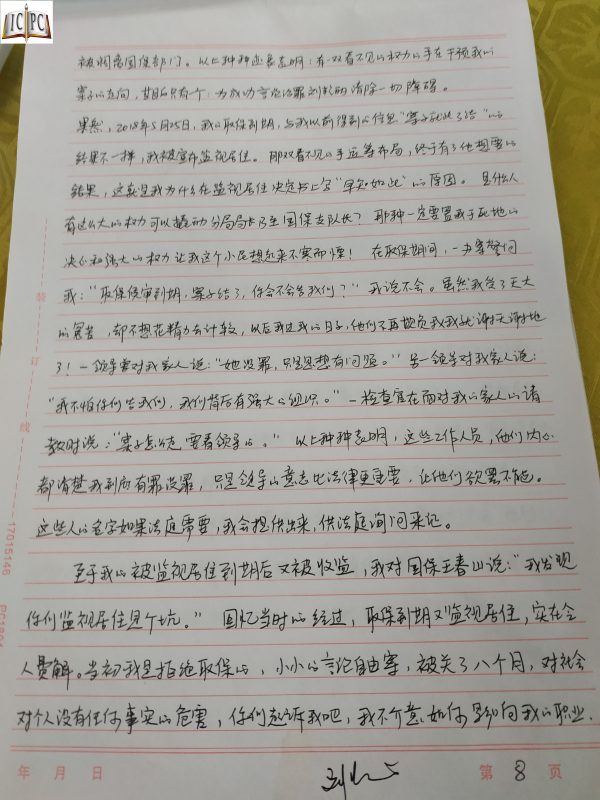 ICPC
被调离国保部门。以上种种迹象表明：有一双看不见的权力的手在干预我的
案子的走向，其目的只有个：为成功言论治罪判我的清除一切障碍。
果然，2018年5月25日，我的取保到期，与我以前得到的信息“案子就此了结”的
结果不一样，我被宣布监视居住。那双看不见的手运筹布局，终于有了他想要的
结果，这就是我为什么在监视居住决定书上写“早知如此”的原因。是什么人
有这么大的权力可以撬动分局局长乃至国保支队长？那种一定要置我于死地的
决心和强大的权力让我这个小民想起来不寒而慄！在取保期间，一办案警问
我：“取保候审到期，案子结了，你会不会告我们？”我说不会。虽然我受了天大
的冤苦，却不想花精力去计较，以后我过我的日子，他们不再欺负我我就谢天谢地
了！一领导要对我家人说：“她没罪，只是思想有问题。”另一领导对我家人说：
“我不怕你们告我们，我们背后有强大的组织。”一检查官在面对我的家人的请
教时说：“案子怎么走要看领导的。”以上种种表明，这些工作人员，他们内心
都清楚我到底有罪没罪，只是领导的意志比法律更重要，让他们欲罢不能。
这些人的名字如果法庭需要，我会提供出来，供法庭询问采记。
至于我的被监视居住到期后又被收监，我对国保王春山说：“我发现
你们监视居住是个坑。”回忆当时的经过，取保到期又监视居住，实在令
人费解。当初我是拒绝取保的，小小的言论自由案，被关了八个月，对社会
对个人没有任何事实的危害，你们起诉我吧，我不介意如何影响我的职业.
装
订
线
17015146
年 月 日
第 8 页